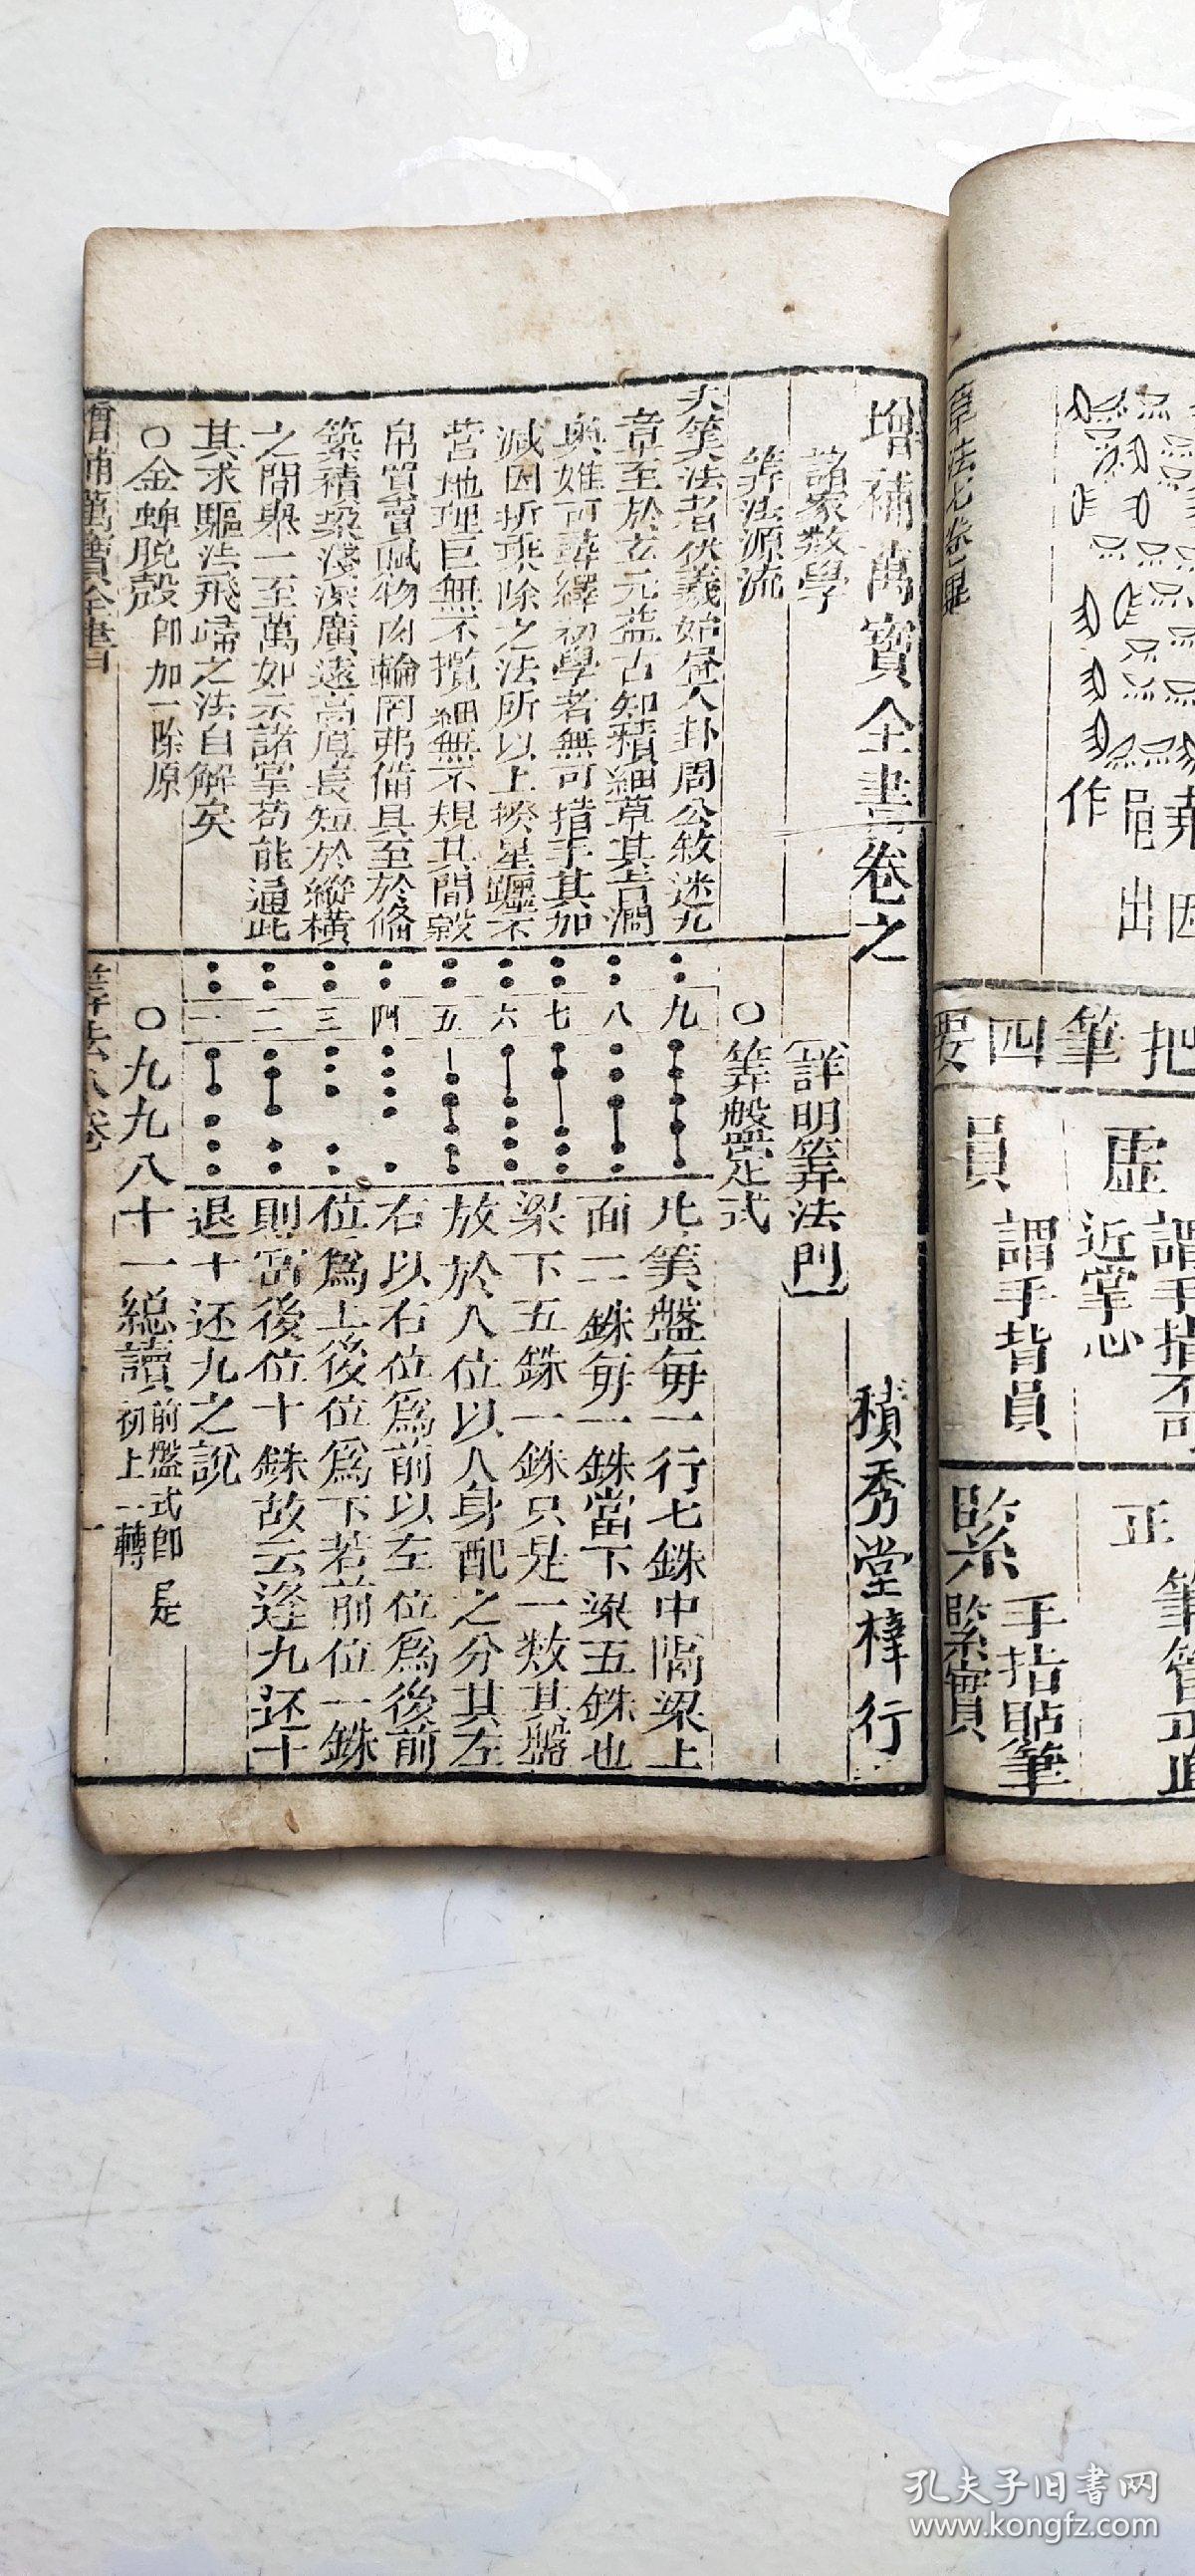 章法七卷畢
作
把筆四要
虛
謂手指不可
近掌心
員
謂手背員
正
筆管正直
緊
手指貼筆
緊實
增補萬寶全書卷之
積秀堂梓行
諸家數學
筭法源流
夫筭法者伏羲始居人卦周公敘述九
章至於玄元益古知積細草其吉澗
奥雖可尋繹初學者無可措手其加
減因折乘除之法所以上揆星躔下
营地理巨無不攬細無不規其間穀
帛買賣賦物肉輪罔弗備具至於修
築積築淺深廣遠高厚長短於縱橫
之間舉一至萬如示諸掌苟能通此
其求驅法飛歸之法自解矣
○金蟬脱殼
即加一除原
詳明筭法門
○筭盤定式
九八七六五四三二一
此筭盤每一行七銖中隔梁上
面二銖每一銖當下梁五銖也
梁下五銖一銖只是一數其盤
放於人位以人身配之分其左
右以右位爲前以左位爲後前
位爲上後位爲下若前位一銖
則當後位十銖故云逢九还十
退十还九之說
○九九八十一総讀
前盤式即是
初上一轉
增補萬寶全書
筭法八卷
一
孔夫子旧書网
www.kongfz.com